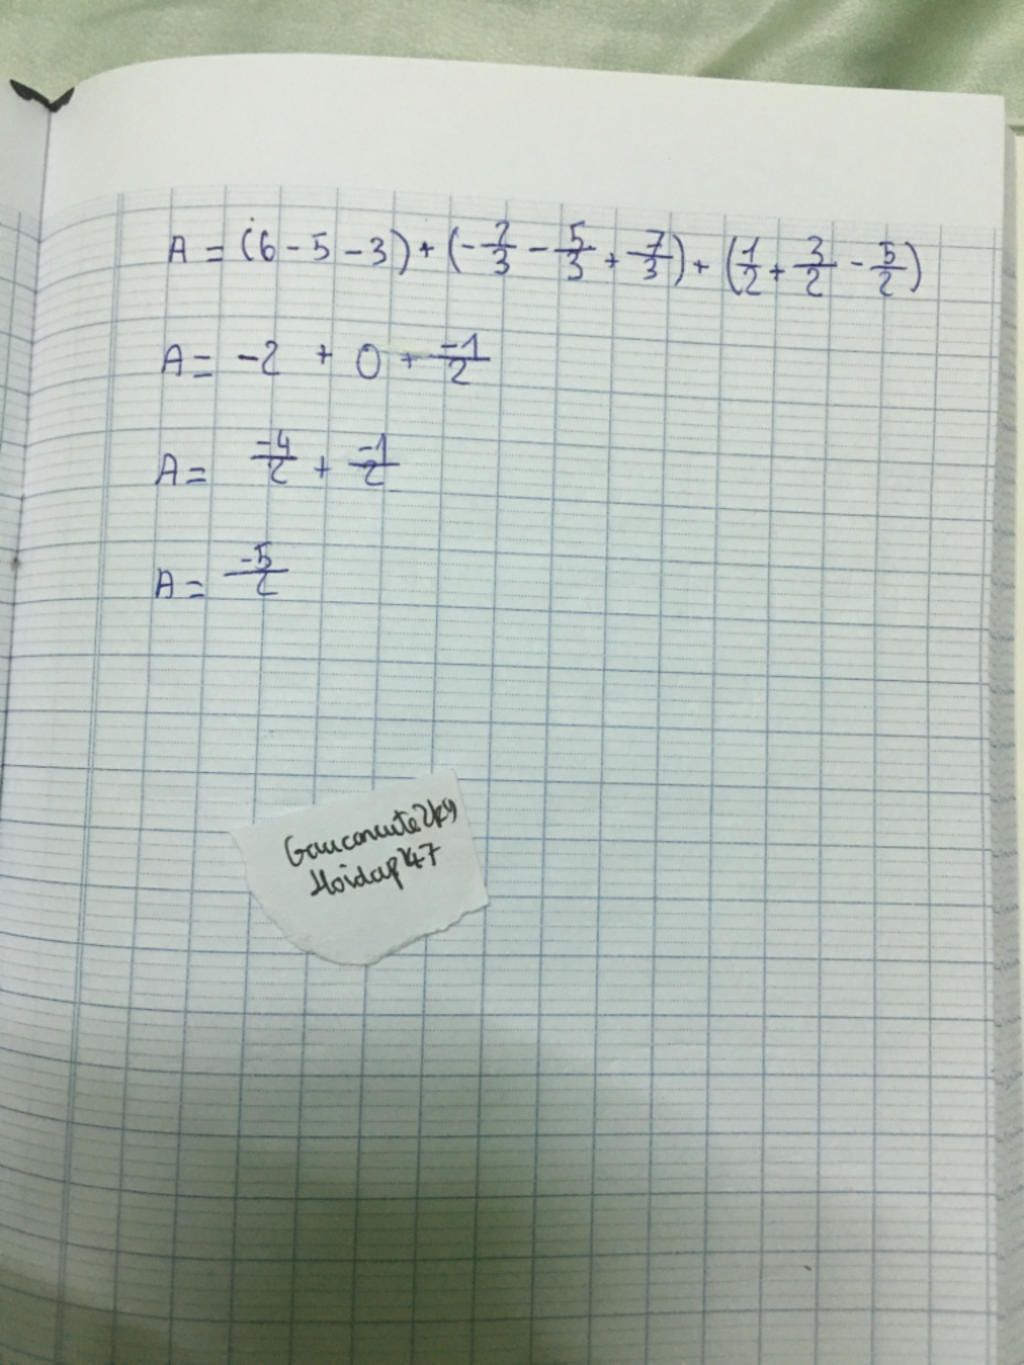 A = (6 - 5 - 3) + (- 2/3 - 5/3 + 7/3) + (1/2 + 3/2 - 5/2)
A = -2 + 0 + -1/2
A = -4/2 + -1/2
A = -5/2
Gauconcute2k9
Hoidap247